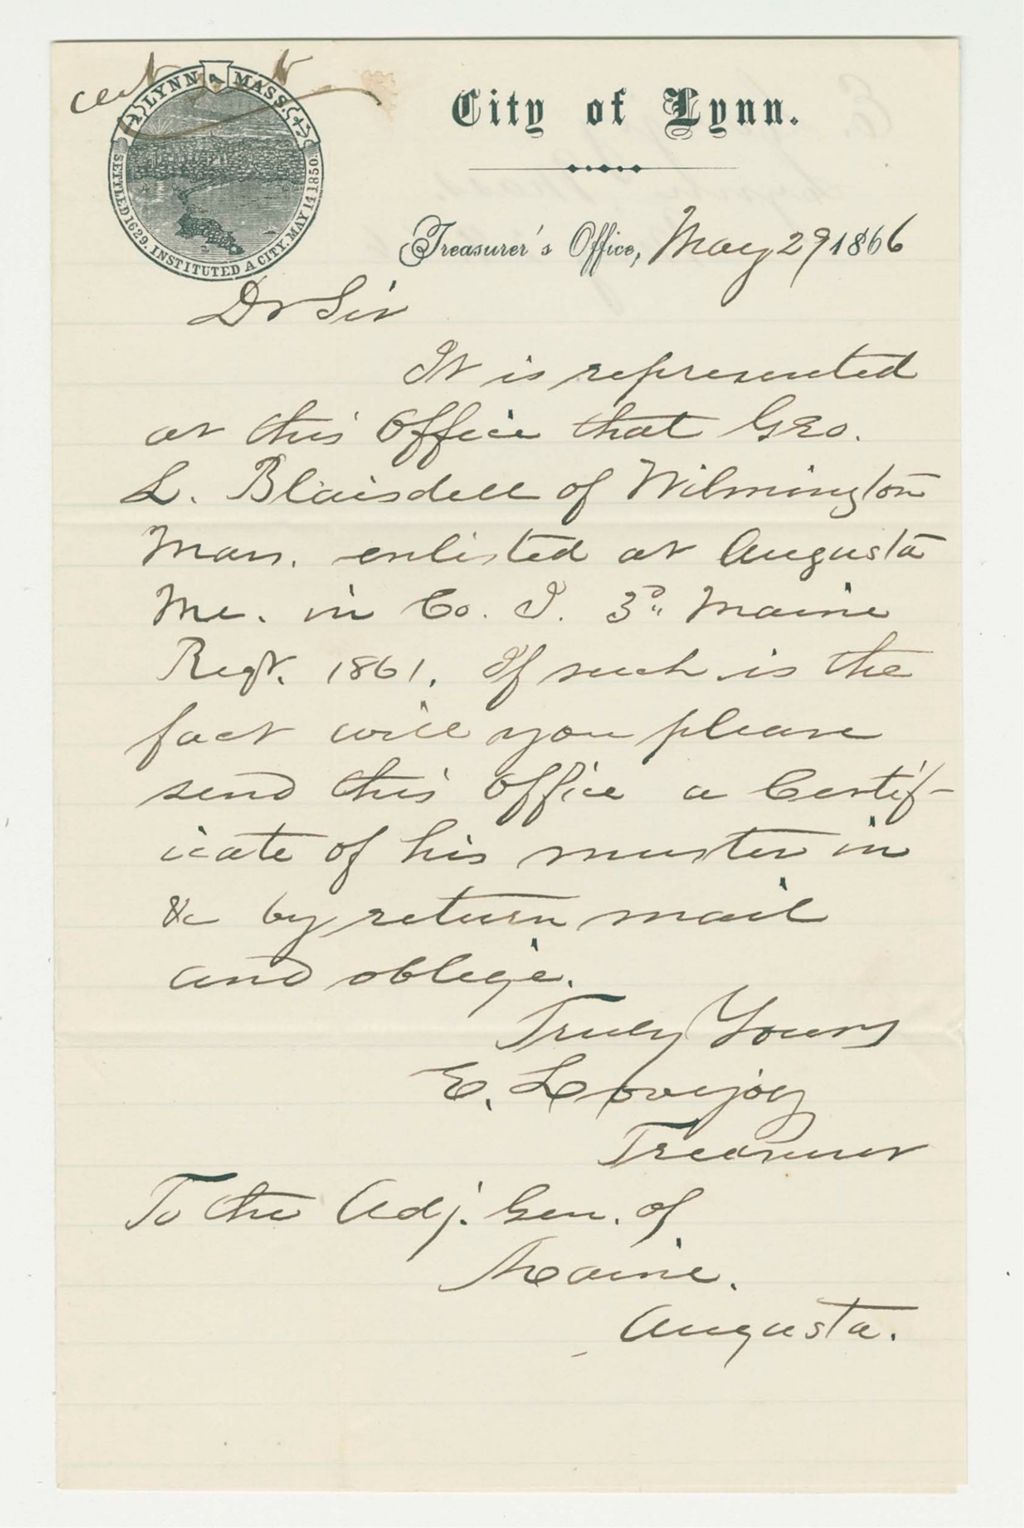 LYNN MASS.
SETTLED 1629. INSTITUTED A CITY. MAY 14 1850.
City of Lynn.
Treasurer's Office, May 29 1866
Dr Sir
It is represented
at this Office that Geo.
L. Blaisdell of Wilmington
Mass. enlisted at Augusta
Me. in Co. I. 3d Maine
Regt. 1861. If such is the
fact will you please
send this Office a Certif-
icate of his muster in
&c by return mail
and oblige.
Truly Yours
E. Lovejoy
Treasurer
To the Adj. Gen. of
Maine.
Augusta.